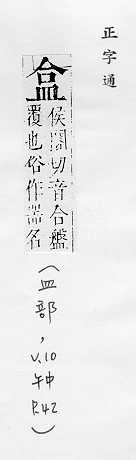 正字通
盒
侯閤切音合盤
覆也俗作器名
(皿部，V.10
午中
P.42)